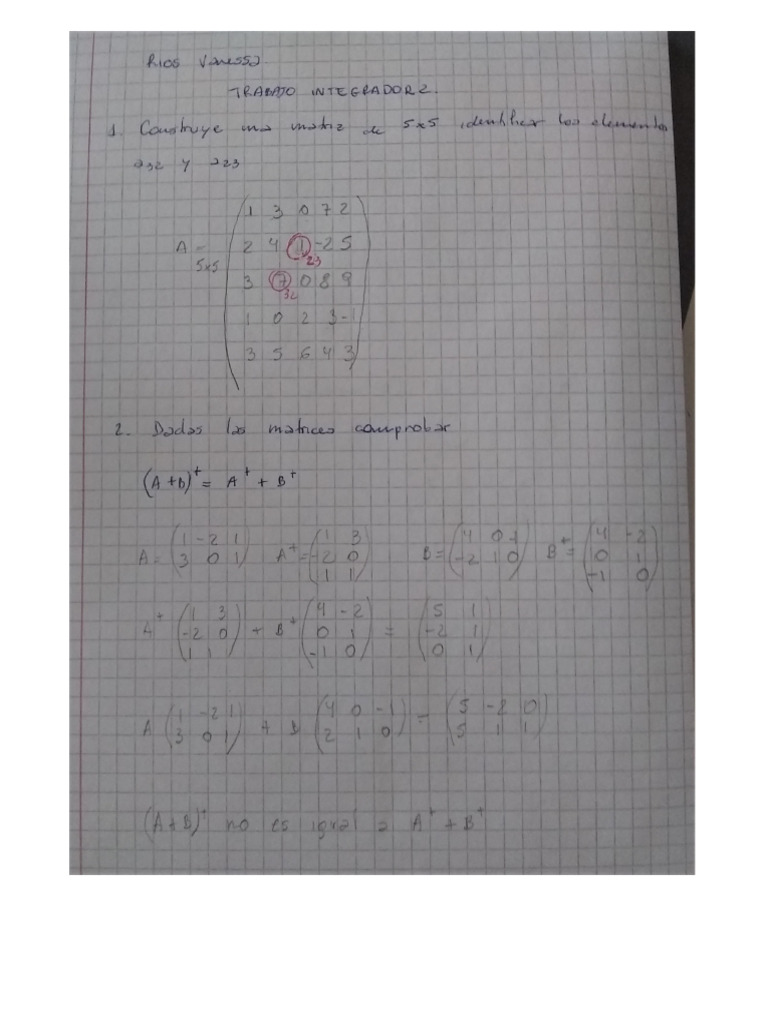 Rios Vanessa.
TRABAJO INTEGRADOR 2.
1. Construye una matriz de 5x5 identificar los elementos
a32 y a23
1 3 0 7 2
A = 2 4 1 -2 5
5x5 23
3 7 0 8 9
32
1 0 2 3 -1
3 5 6 4 3
2. Dadas las matrices comprobar
(A+B)^t = A^t + B^t
A = (1 -2 1 / 3 0 1) A^t = (1 3 / -2 0 / 1 1) B = (4 0 -1 / -2 1 0) B^t = (4 -2 / 0 1 / -1 0)
A^t (1 3 / -2 0 / 1 1) + B^t (4 -2 / 0 1 / -1 0) = (5 1 / -2 1 / 0 1)
A (1 -2 1 / 3 0 1) + B (4 0 -1 / 2 1 0) = (5 -2 0 / 5 1 1)
(A+B)^t no es igual a A^t + B^t